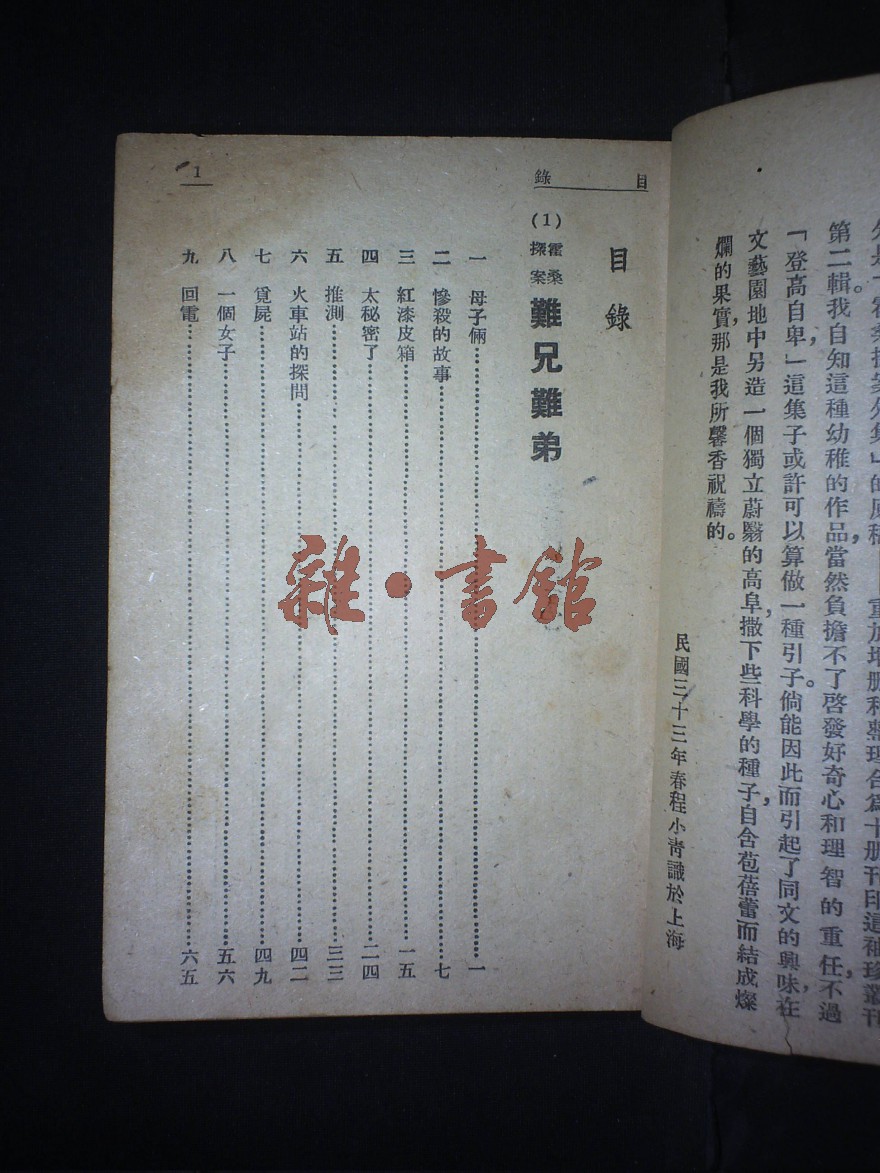 第二輯。我自知這種幼稚的作品，當然負擔不了啓發好奇心和理智的重任，不過
「登高自卑」，這集子或許可以算做一種引子。倘能因此而引起了同文的興味，在
文藝園地中另造一個獨立蔚翳的高阜，撒下些科學的種子，自含苞蓓蕾而結成燦
爛的果實，那是我所馨香祝禱的。
民國三十三年春程小青識於上海
目錄
1
目錄
(1)霍桑探案 難兄難弟
一 母子倆……一
二 慘殺的故事……七
三 紅漆皮箱……一五
四 太秘密了……二四
五 推測……三三
六 火車站的探問……四二
七 覓屍……四九
八 一個女子……五六
九 回電……六五
雜·書館